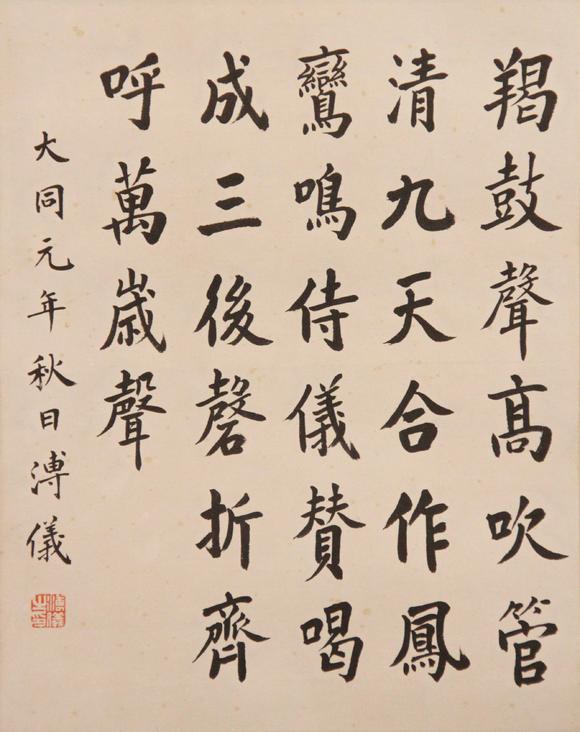 羯鼓聲高吹管
清九天合作鳳
鸞鳴侍儀贊喝
成三後磬折齊
呼萬歲聲
大同元年秋日溥儀
溥儀之印